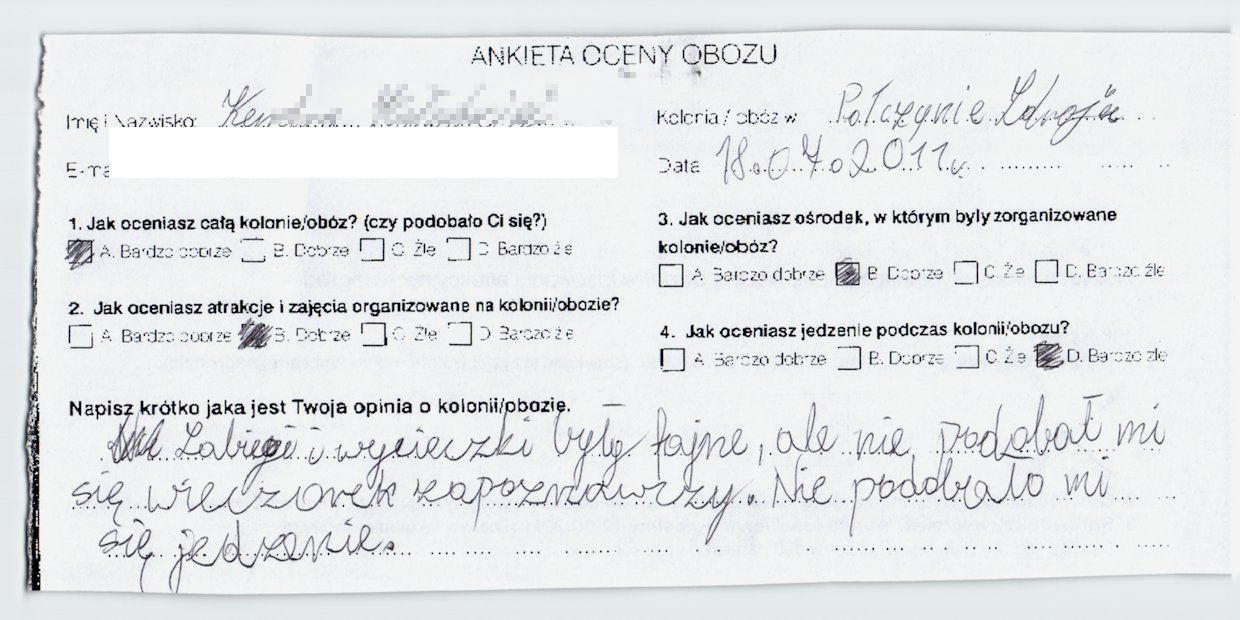 ANKIETA OCENY OBOZU
Imię i Nazwisko:
Kolonia / obóz w Połczynie Zdroju
E-ma
Data 18.07.2011r.
1. Jak oceniasz całą kolonie/obóz? (czy podobało Ci się?)
A. Bardzo dobrze B. Dobrze C. Źle D. Bardzo źle
2. Jak oceniasz atrakcje i zajęcia organizowane na kolonii/obozie?
A. Bardzo dobrze B. Dobrze C. Źle D. Bardzo źle
3. Jak oceniasz ośrodek, w którym były zorganizowane
kolonie/obóz?
A. Bardzo dobrze B. Dobrze C. Źle D. Bardzo źle
4. Jak oceniasz jedzenie podczas kolonii/obozu?
A. Bardzo dobrze B. Dobrze C. Źle D. Bardzo źle
Napisz krótko jaka jest Twoja opinia o kolonii/obozie.
Zabiegi i wycieczki były fajne, ale nie podobał mi
się wieczorek zapoznawczy. Nie podobało mi
się jedzenie.